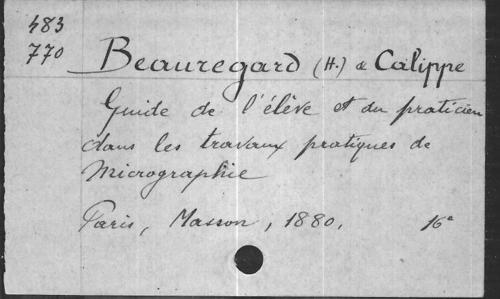 483
770
Beauregard (H.) & Calippe
Guide de l'élève et du praticien
dans les travaux pratiques de
Micrographie
Paris, Masson, 1880. 16°